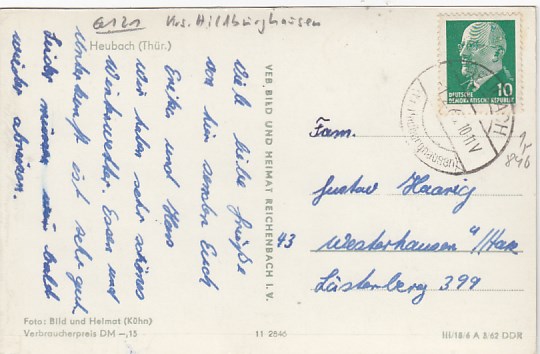 G121 Krs. Hildburghausen
Heubach (Thür.)
Viele liebe Grüße
von hier senden Euch
Erika und Hans
Wir haben sehr schönes
Winterwetter. Essen und
Unterkunft ist sehr gut.
Leider müssen wir bald
wieder abreisen.
Foto: Bild und Heimat (Kühn)
Verbraucherpreis DM -,15
VEB BILD UND HEIMAT REICHENBACH I. V.
11 2646
10
DEUTSCHE
DEMOKRATISCHE REPUBLIK
(Kr Hildburghausen)
10.11 V
1,-
846
Fam.
Gustav Haarig
43 Westerhausen /Harz
Lästerberg 399
III/18/6 A 3/62 DDR